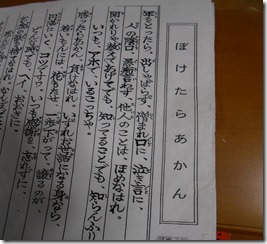 ぼけたらあかん
年をとったら、出しゃばらず、憎まれ口に、泣き言に、
人の陰口、愚痴言わず、他人のことは、ほめなはれ。
聞かれりゃ教えてあげてでも、知ってることでも、知らんふり
いつも、アホでいるこっちゃ。
勝ったらあかん、負けなはれ。いずれお世話になる身なら、
若いもんには、花もたせ、一歩さがって、譲るのが、
円満にいく、コツですわ。いつも感謝を、忘れずに、
どんな時でも、ヘイ、おおきに。